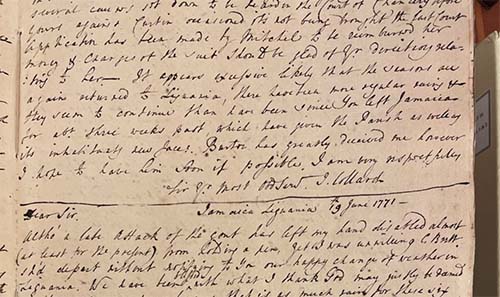 several causes set down to be heard in the Court of Chancery upon
yours against Curtin occasioned its not being brought the last Court
Application has been made by Mitchel to be reimbursed her
money & Charges of the suit should be glad of Yr. directions rela-
ting to her — It appears excessive likely that the seasons are
again returned to Liguania, there have been more regular rains &
they seem to continue than have been since You left Jamaica
for abt three weeks past which have given the Parish as well as
its inhabitants new faces. Barton has greatly deceived me however
I hope to have him soon if possible. I am very respectfully
Sir Yr. most Obt Servt. J. Collard
Jamaica Liguania 9 June 1771 —
Dear Sir
Altho' a late attack of the gout has left my hand disabled almost
(at least for the present) from holding a pen, yet I was unwilling C Brett
shd. depart without to You our happy change of weather in
Liguania. We have been with what I think God may justly be
that is as much rain for these six